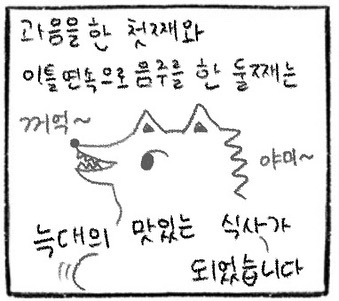 과음을 한 첫째와
이틀연속으로 음주를 한 둘째는
꺼억~
야미~
늑대의 맛있는 식사가
되었습니다